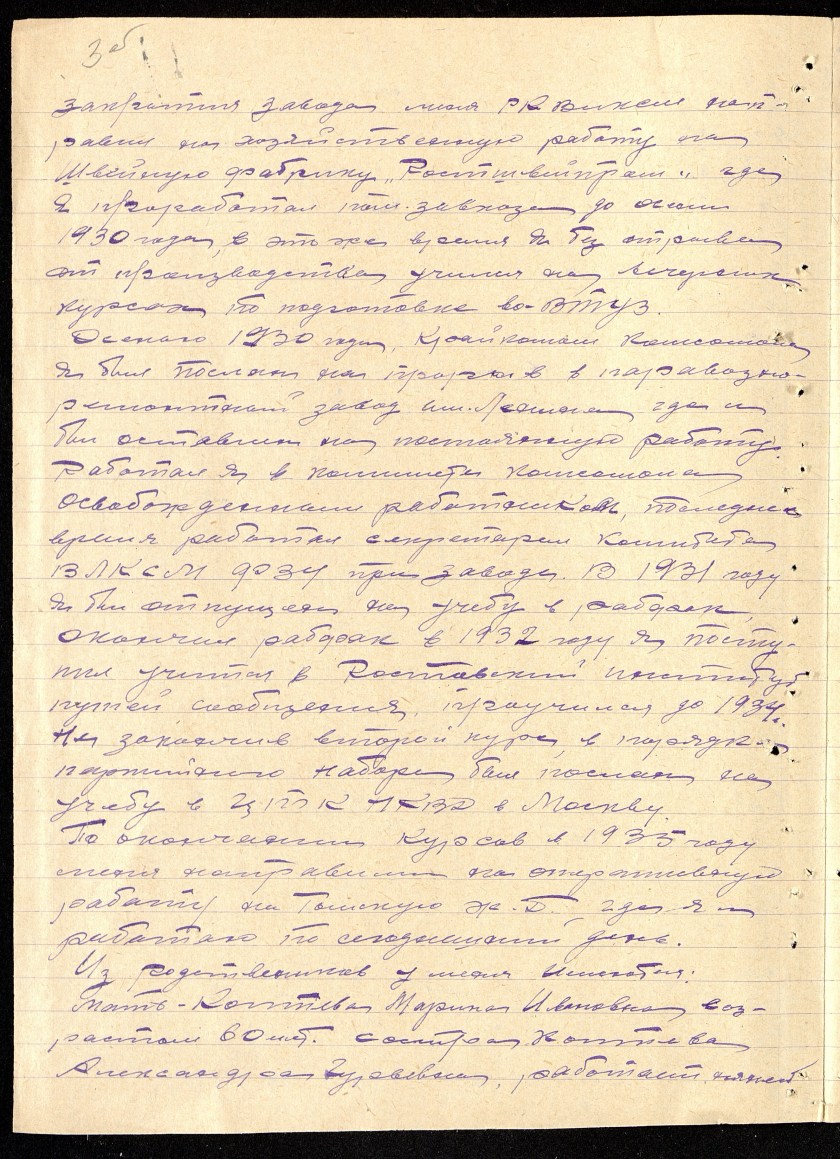 3 об
закрытия завода меня РК ВЛКСМ нап-
равил на хозяйственную работу на
Швейную фабрику „Ростшвейпром" где
я проработал пом. завхоза до осени
1930 года, в это же время я без отрыва
от производства учился на вечерних
курсах по подготовке во-ВТУЗ.
Осенью 1930 года, Крайкомом Комсомола
я был послан на прорыв в паравозно-
ремонтный завод им. Ленина где и
был оставлен на постоянную работу.
Работал я в комитете комсомола
освобожденным работником, последнее
время работал секретарем Комитета
ВЛКСМ ФЗУ при заводе. В 1931 году
я был отпущен на учебу в рабфак,
окончил рабфак в 1932 году я посту-
пил учится в Ростовский институт
путей сообщения, проучился до 1934.
Не закончив второй курс, в порядке
партийного набора был послан на
учебу в ЦШ НКВД в Москву.
По окончании курсов в 1935 году
меня направили на оперативную
работу на Томскую ж.д., где я и
работаю по сегодняшний день.
Из родственников у меня имеются:
Мать - Коптева Марина Ивановна воз-
растом 60 лет. сестра Коптева
Александра Гурьевна, работает няней